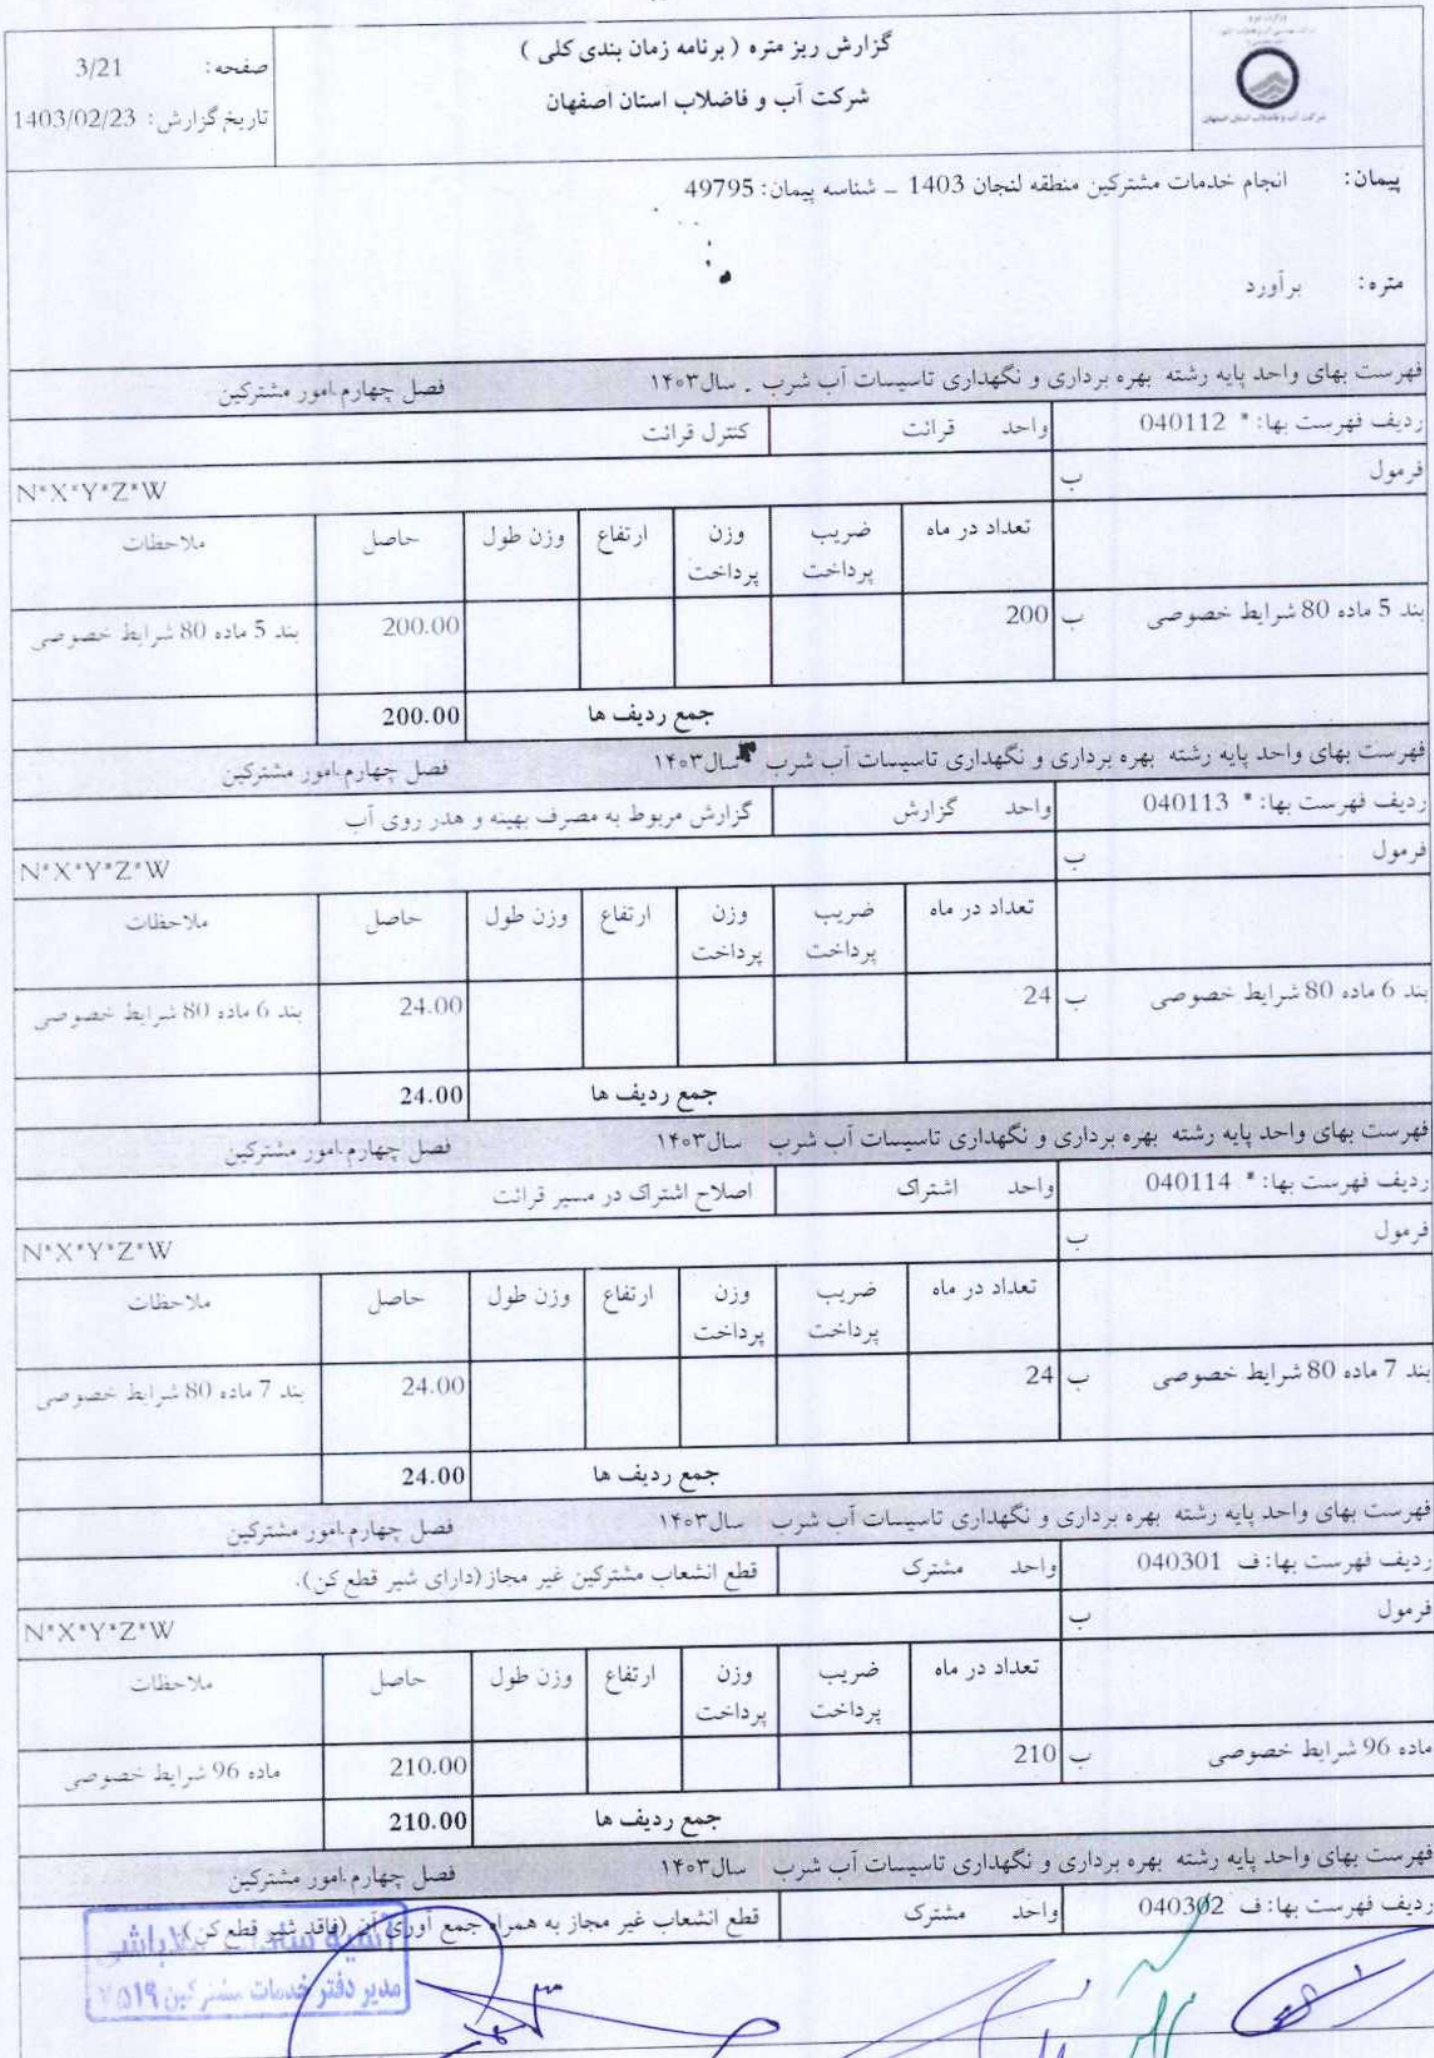 گزارش ریز متره ( برنامه زمان بندی کلی )
شرکت آب و فاضلاب استان اصفهان
صفحه: 3/21
تاریخ گزارش: 1403/02/23
شرکت آب و فاضلاب استان اصفهان
پیمان: انجام خدمات مشترکین منطقه لنجان 1403 - شناسه پیمان: 49795
متره: برآورد
فهرست بهای واحد پایه رشته بهره برداری و نگهداری تاسیسات آب شرب . سال۱۴۰۳ فصل چهارم.امور مشترکین
ردیف فهرست بها: * 040112 واحد قرائت کنترل قرائت
فرمول ب N*X*Y*Z*W
تعداد در ماه ضریب پرداخت وزن پرداخت ارتفاع وزن طول حاصل ملاحظات
بند 5 ماده 80 شرایط خصوصی ب 200 200.00 بند 5 ماده 80 شرایط خصوصی
جمع ردیف ها 200.00
فهرست بهای واحد پایه رشته بهره برداری و نگهداری تاسیسات آب شرب سال۱۴۰۳ فصل چهارم.امور مشترکین
ردیف فهرست بها: * 040113 واحد گزارش گزارش مربوط به مصرف بهینه و هدر روی آب
فرمول ب N*X*Y*Z*W
تعداد در ماه ضریب پرداخت وزن پرداخت ارتفاع وزن طول حاصل ملاحظات
بند 6 ماده 80 شرایط خصوصی ب 24 24.00 بند 6 ماده 80 شرایط خصوصی
جمع ردیف ها 24.00
فهرست بهای واحد پایه رشته بهره برداری و نگهداری تاسیسات آب شرب سال۱۴۰۳ فصل چهارم.امور مشترکین
ردیف فهرست بها: * 040114 واحد اشتراک اصلاح اشتراک در مسیر قرائت
فرمول ب N*X*Y*Z*W
تعداد در ماه ضریب پرداخت وزن پرداخت ارتفاع وزن طول حاصل ملاحظات
بند 7 ماده 80 شرایط خصوصی ب 24 24.00 بند 7 ماده 80 شرایط خصوصی
جمع ردیف ها 24.00
فهرست بهای واحد پایه رشته بهره برداری و نگهداری تاسیسات آب شرب سال۱۴۰۳ فصل چهارم.امور مشترکین
ردیف فهرست بها: ف 040301 واحد مشترک قطع انشعاب مشترکین غیر مجاز (دارای شیر قطع کن).
فرمول ب N*X*Y*Z*W
تعداد در ماه ضریب پرداخت وزن پرداخت ارتفاع وزن طول حاصل ملاحظات
ماده 96 شرایط خصوصی ب 210 210.00 ماده 96 شرایط خصوصی
جمع ردیف ها 210.00
فهرست بهای واحد پایه رشته بهره برداری و نگهداری تاسیسات آب شرب سال۱۴۰۳ فصل چهارم.امور مشترکین
ردیف فهرست بها: ف 040302 واحد مشترک قطع انشعاب غیر مجاز به همراه جمع آوری آن (فاقد شیر قطع کن)
مدیر دفتر خدمات مشترکین